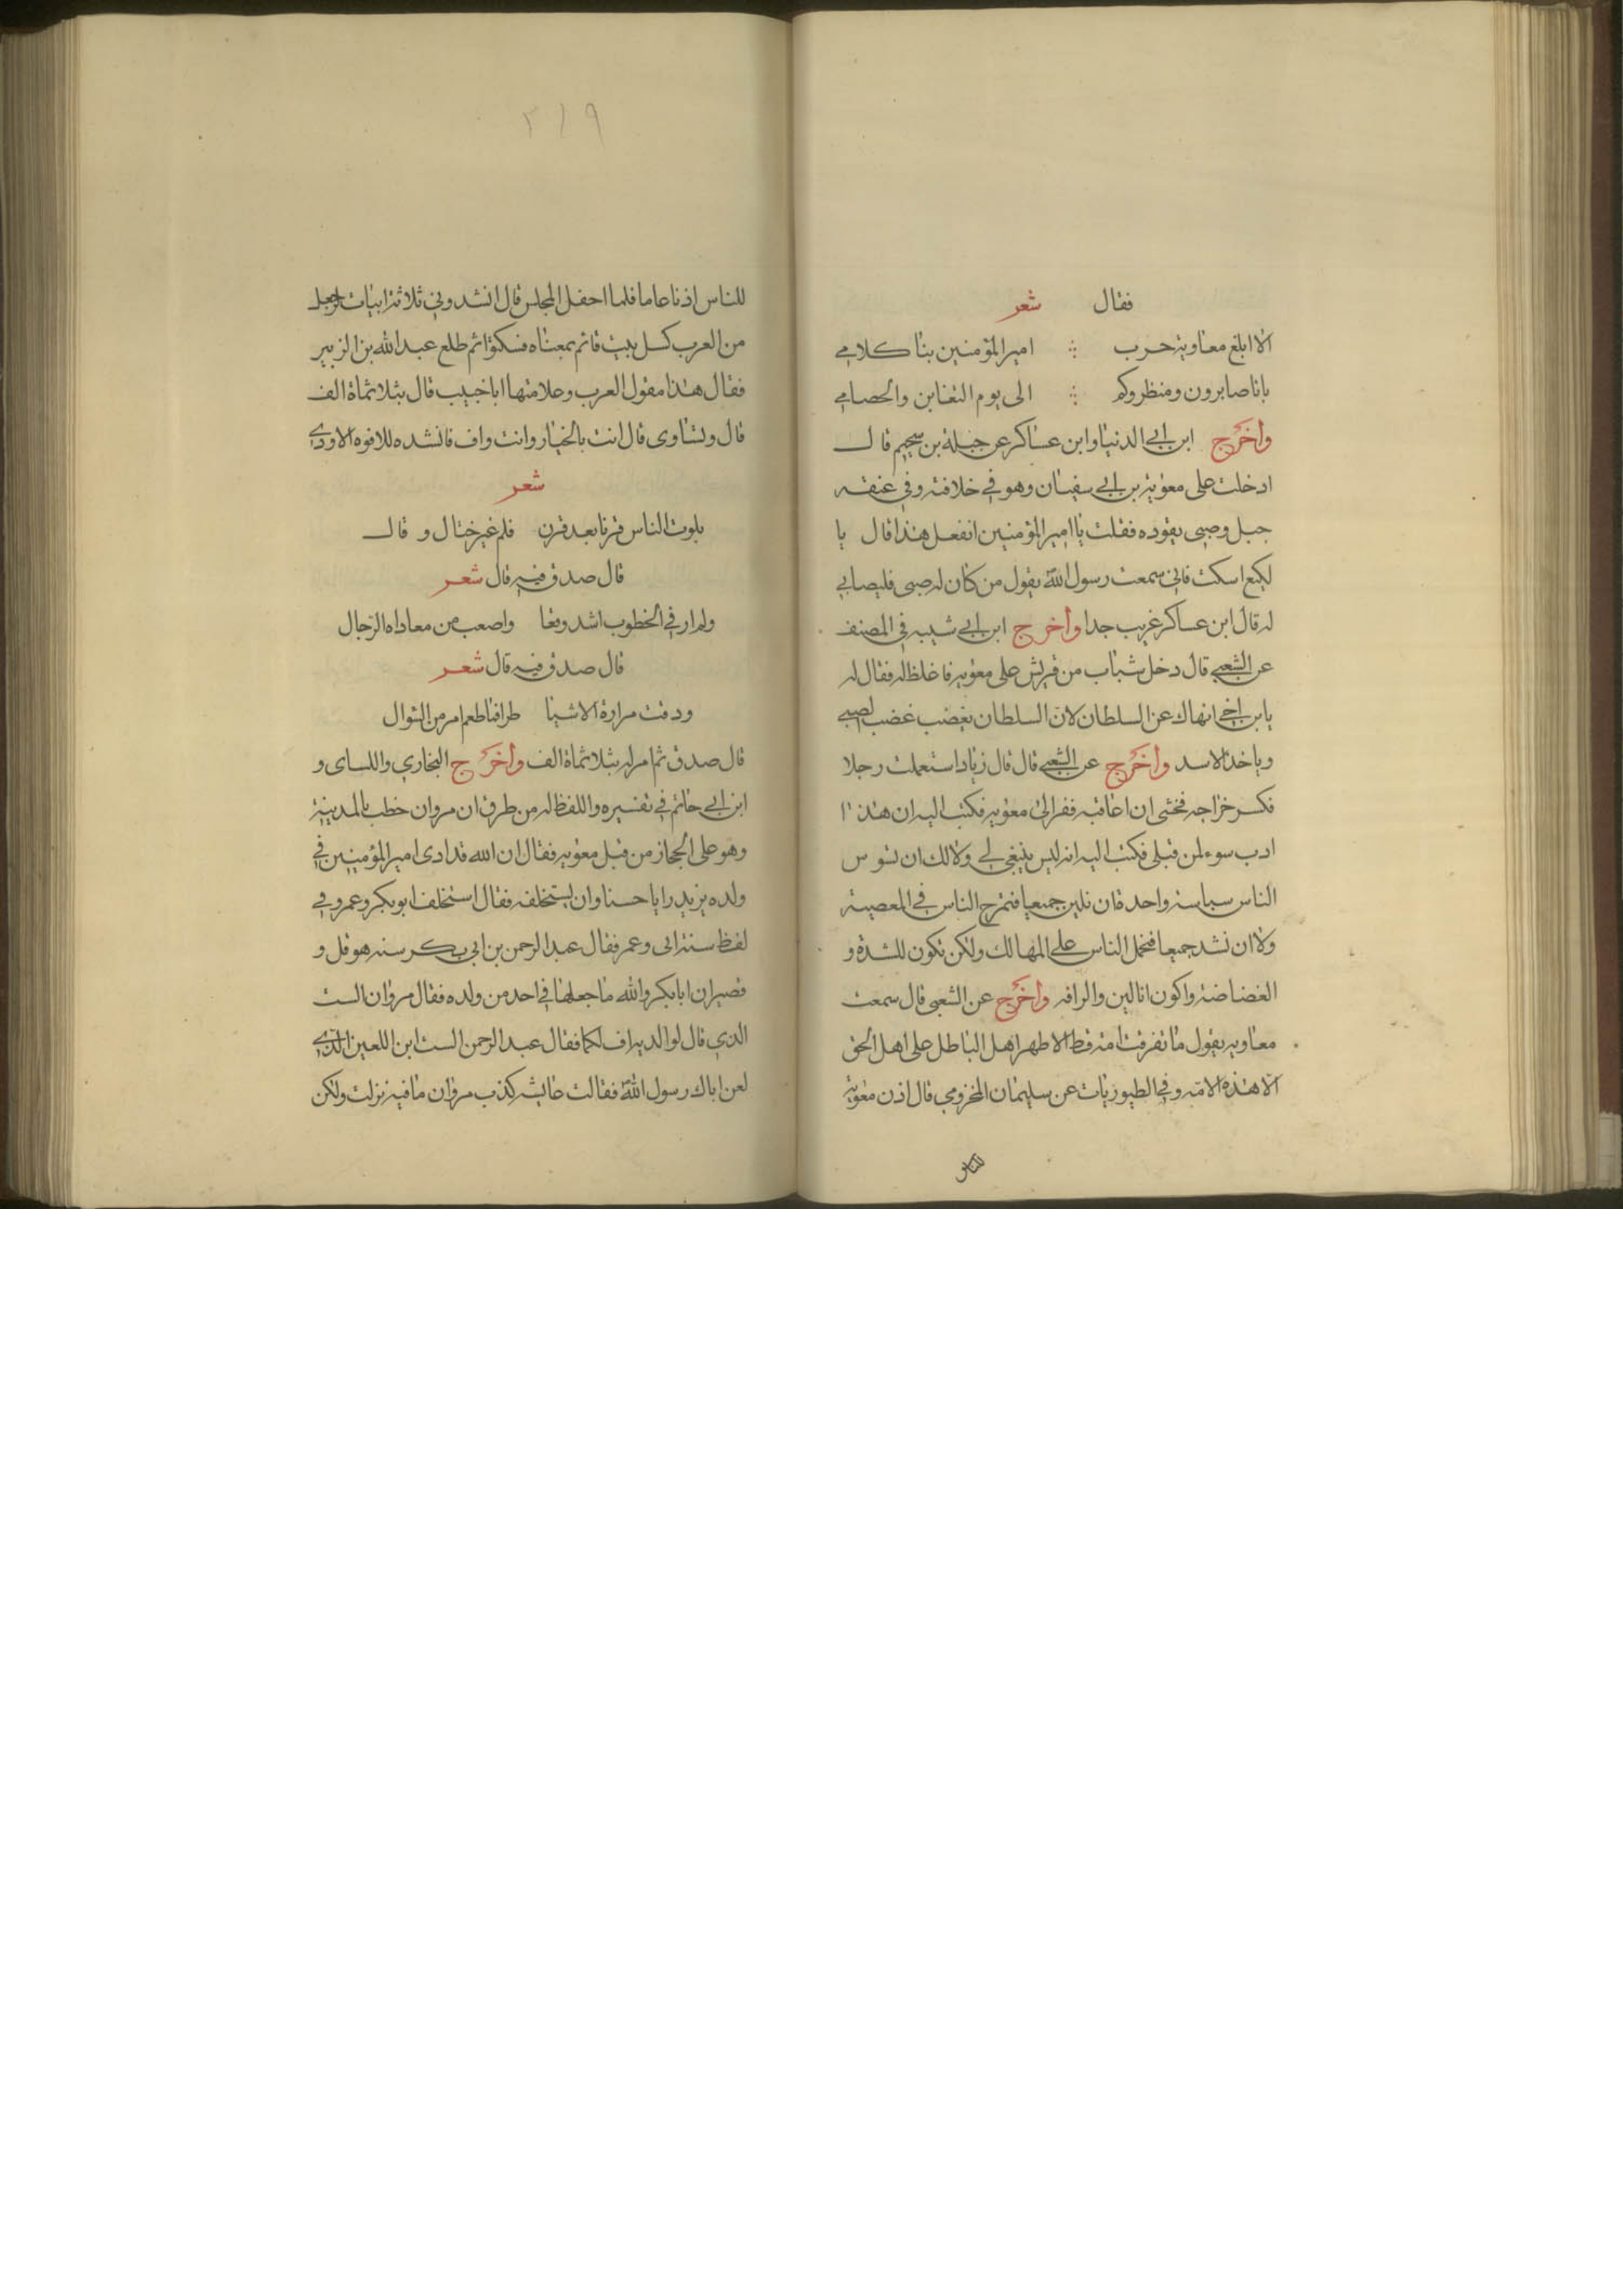 فقال شعر
الا ابلغ معاوية حرب ؞ امير المؤمنين بنا كلامي
بانا صابرون ومنظروكم ؞ الى يوم التغابن والخصامي
وأخرج ابن ابي الدنيا وابن عساكر عن جبلة بن سحيم قال
ادخلت على معوية بن ابي سفيان وهو في خلافته وفي عنقه
حبل وصبي يقوده فقلت يا امير المؤمنين اتفعل هذا قال يا
لكيع اسكت فاني سمعت رسول الله يقول من كان له صبي فليصابي
له قال ابن عساكر غريب جدا وأخرج ابن ابي شيبه في المصنف
عن الشعبي قال دخل شباب من قريش على معويه فاغلظ له فقال له
يابن اخي انهاك عن السلطان لان السلطان يغضب غضب الصبي
وياخذ الاسد وأخرج عن الشعبي قال قال زياد استعملت رجلا
فكسر خراجه فخشى ان اعاقبه ففر الى معويه فكتب اليه ان هذا
ادب سوء لمن قبلي فكتب اليه انه ليس ينبغي لي ولا لك ان نسوس
الناس سياسة واحد فان نلين جميعا فتمرح الناس في المعصية
ولا ان نشد جميعا فنحمل الناس على المهالك ولكن تكون للشدة و
الغضاضة واكون انا لين والرافه وأخرج عن الشعبي قال سمعت
معاويه يقول ما تفرقت امة قط الا ظهر اهل الباطل على اهل الحق
الا هذه الامة وفي الطيوريات عن سليمان المخزومي قال اذن معوية
للناس
٣١٩
للناس اذنا عاما فلما احفل المجلس قال انشدوني ثلاثة ابيات لرجل
من العرب كل بيت قائم بمعناه فسكتوا ثم طلع عبد الله بن الزبير
فقال هذا مقول العرب وعلامتها ابا خبيب قال بثلاثماة الف
قال وتساوى قال انت بالخيار وانت واف فانشده للافوه الاودي
شعر
بلوت الناس قرنا بعد قرن فلم غير ختال و قال
قال صدق فيه قال شعر
ولم ار في الخطوب اشد وقعا واصعب من معاداه الرجال
قال صدق فيه قال شعر
ودقت مرارة الاشيا طرا فما طعم امر من السوال
قال صدق ثم امر له بثلاثماة الف وأخرج البخاري واللساى و
ابن ابي حاتم في تفسيره واللفظ له من طرق ان مروان خطب بالمدينة
وهو على الحجاز من قبل معويه فقال ان الله قد ادى امير المؤمنين في
ولده يزيد رايا حسنا وان يستخلفه فقال استخلف ابو بكر وعمر وفي
لفظ سنة ابى وعمر فقال عبد الرحمن بن ابي بكر سنه هوقل و
قصير ان ابا بكر والله ما جعلها في احد من ولده فقال مروان الست
الذي قال لوالديه اف لكما فقال عبد الرحمن الست ابن اللعين الذي
لعن اباك رسول الله فقالت عايشه كذب مروان ما فيه نزلت ولكن